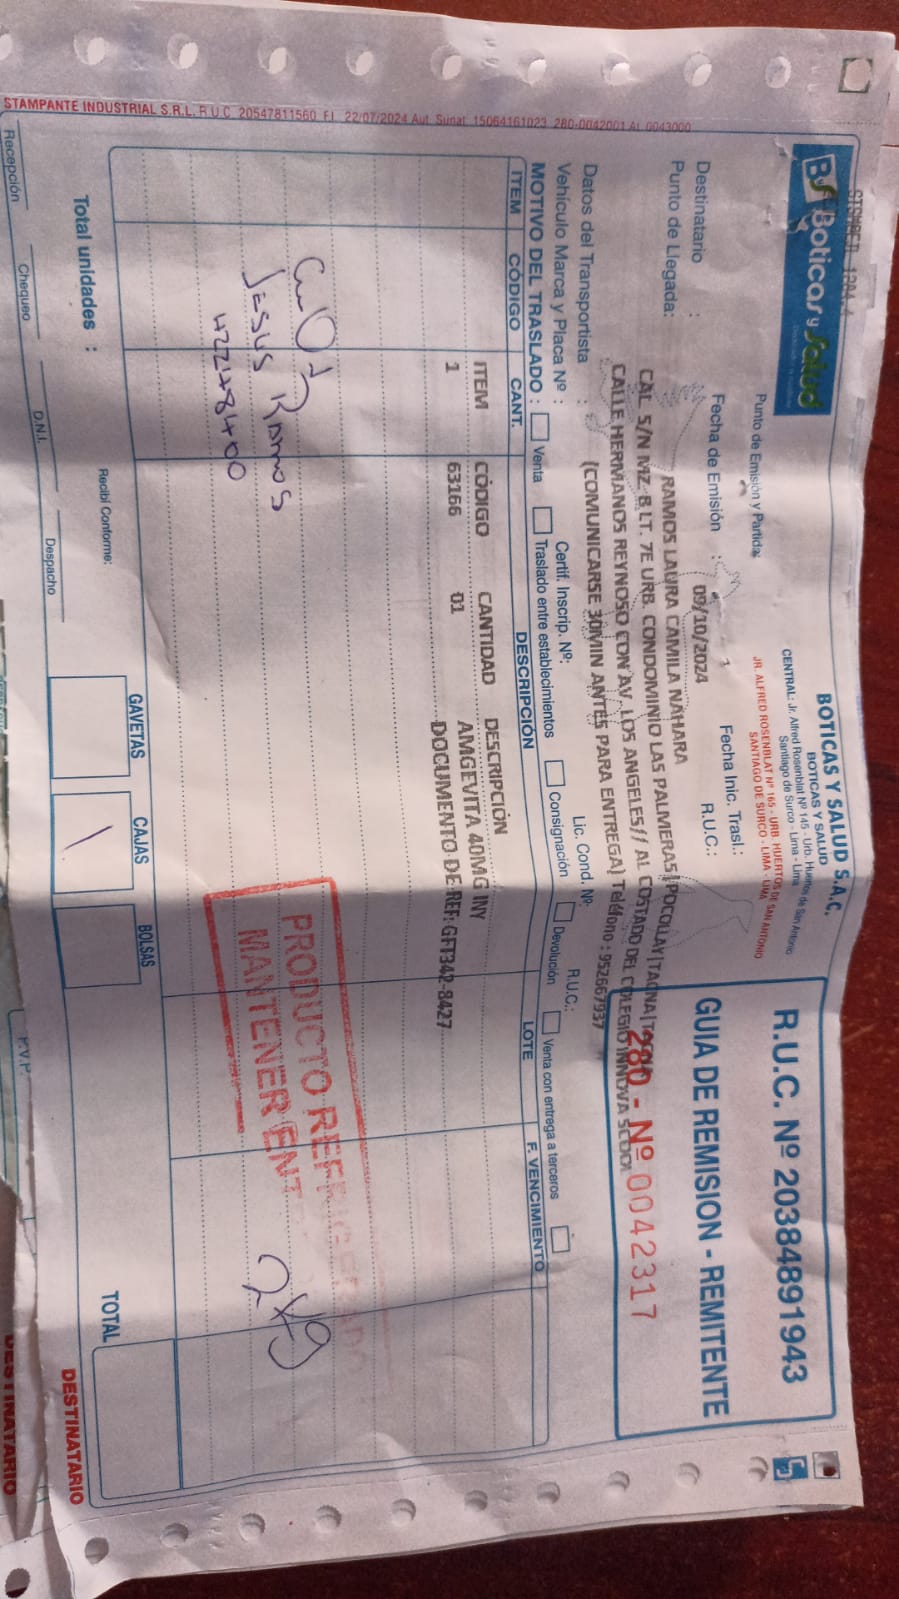 STAMPANTE INDUSTRIAL S.R.L. R.U.C 20547811560 F.I. 22/07/2024 Aut. Sunat 15064161023 280-0042001 AL 0043000
BS Boticas y Salud
BOTICAS Y SALUD S.A.C.
BOTICAS Y SALUD
CENTRAL: Jr. Alfred Rosenblat Nº 145 - Urb. Huertos de San Antonio
Santiago de Surco - Lima - Lima
Punto de Emisión y Partida:
JR. ALFRED ROSENBLAT Nº 165 - URB. HUERTOS DE SAN ANTONIO
SANTIAGO DE SURCO - LIMA - LIMA
R.U.C. Nº 20384891943
GUIA DE REMISION - REMITENTE
280 - Nº 0042317
Fecha de Emisión : 09/10/2024
Fecha Inic. Trasl.:
Destinatario : RAMOS LAURA CAMILA NAHARA
R.U.C.:
Punto de Llegada: CAL. S/N MZ. B LT. 7E URB. CONDOMINIO LAS PALMERAS|POCOLLAY|TACNA
CALLE HERMANOS REYNOSO CON AV. LOS ANGELES// AL COSTADO DEL COLEGIO INNOVA
(COMUNICARSE 30MIN ANTES PARA ENTREGA) Teléfono : 952667937
Datos del Transportista :
Lic. Cond. Nº:
R.U.C.:
Vehículo Marca y Placa Nº :
Certif. Inscrip. Nº:
MOTIVO DEL TRASLADO : Venta Traslado entre establecimientos Consignación Devolución Venta con entrega a terceros
ITEM CÓDIGO CANT. DESCRIPCIÓN LOTE F. VENCIMIENTO
ITEM CÓDIGO CANTIDAD DESCRIPCIÓN
1 63166 01 AMGEVITA 40MG INY
DOCUMENTO DE REF: GFT342-8427
JESUS RAMOS
42248400
PRODUCTO REFRIGERADO
MANTENER EN
2x9
Total unidades :
Recibí Conforme:
GAVETAS
CAJAS
1
BOLSAS
TOTAL
Recepción
Chequeo
D.N.I.
Despacho
P.V.P.
DESTINATARIO
DESTINATARIO